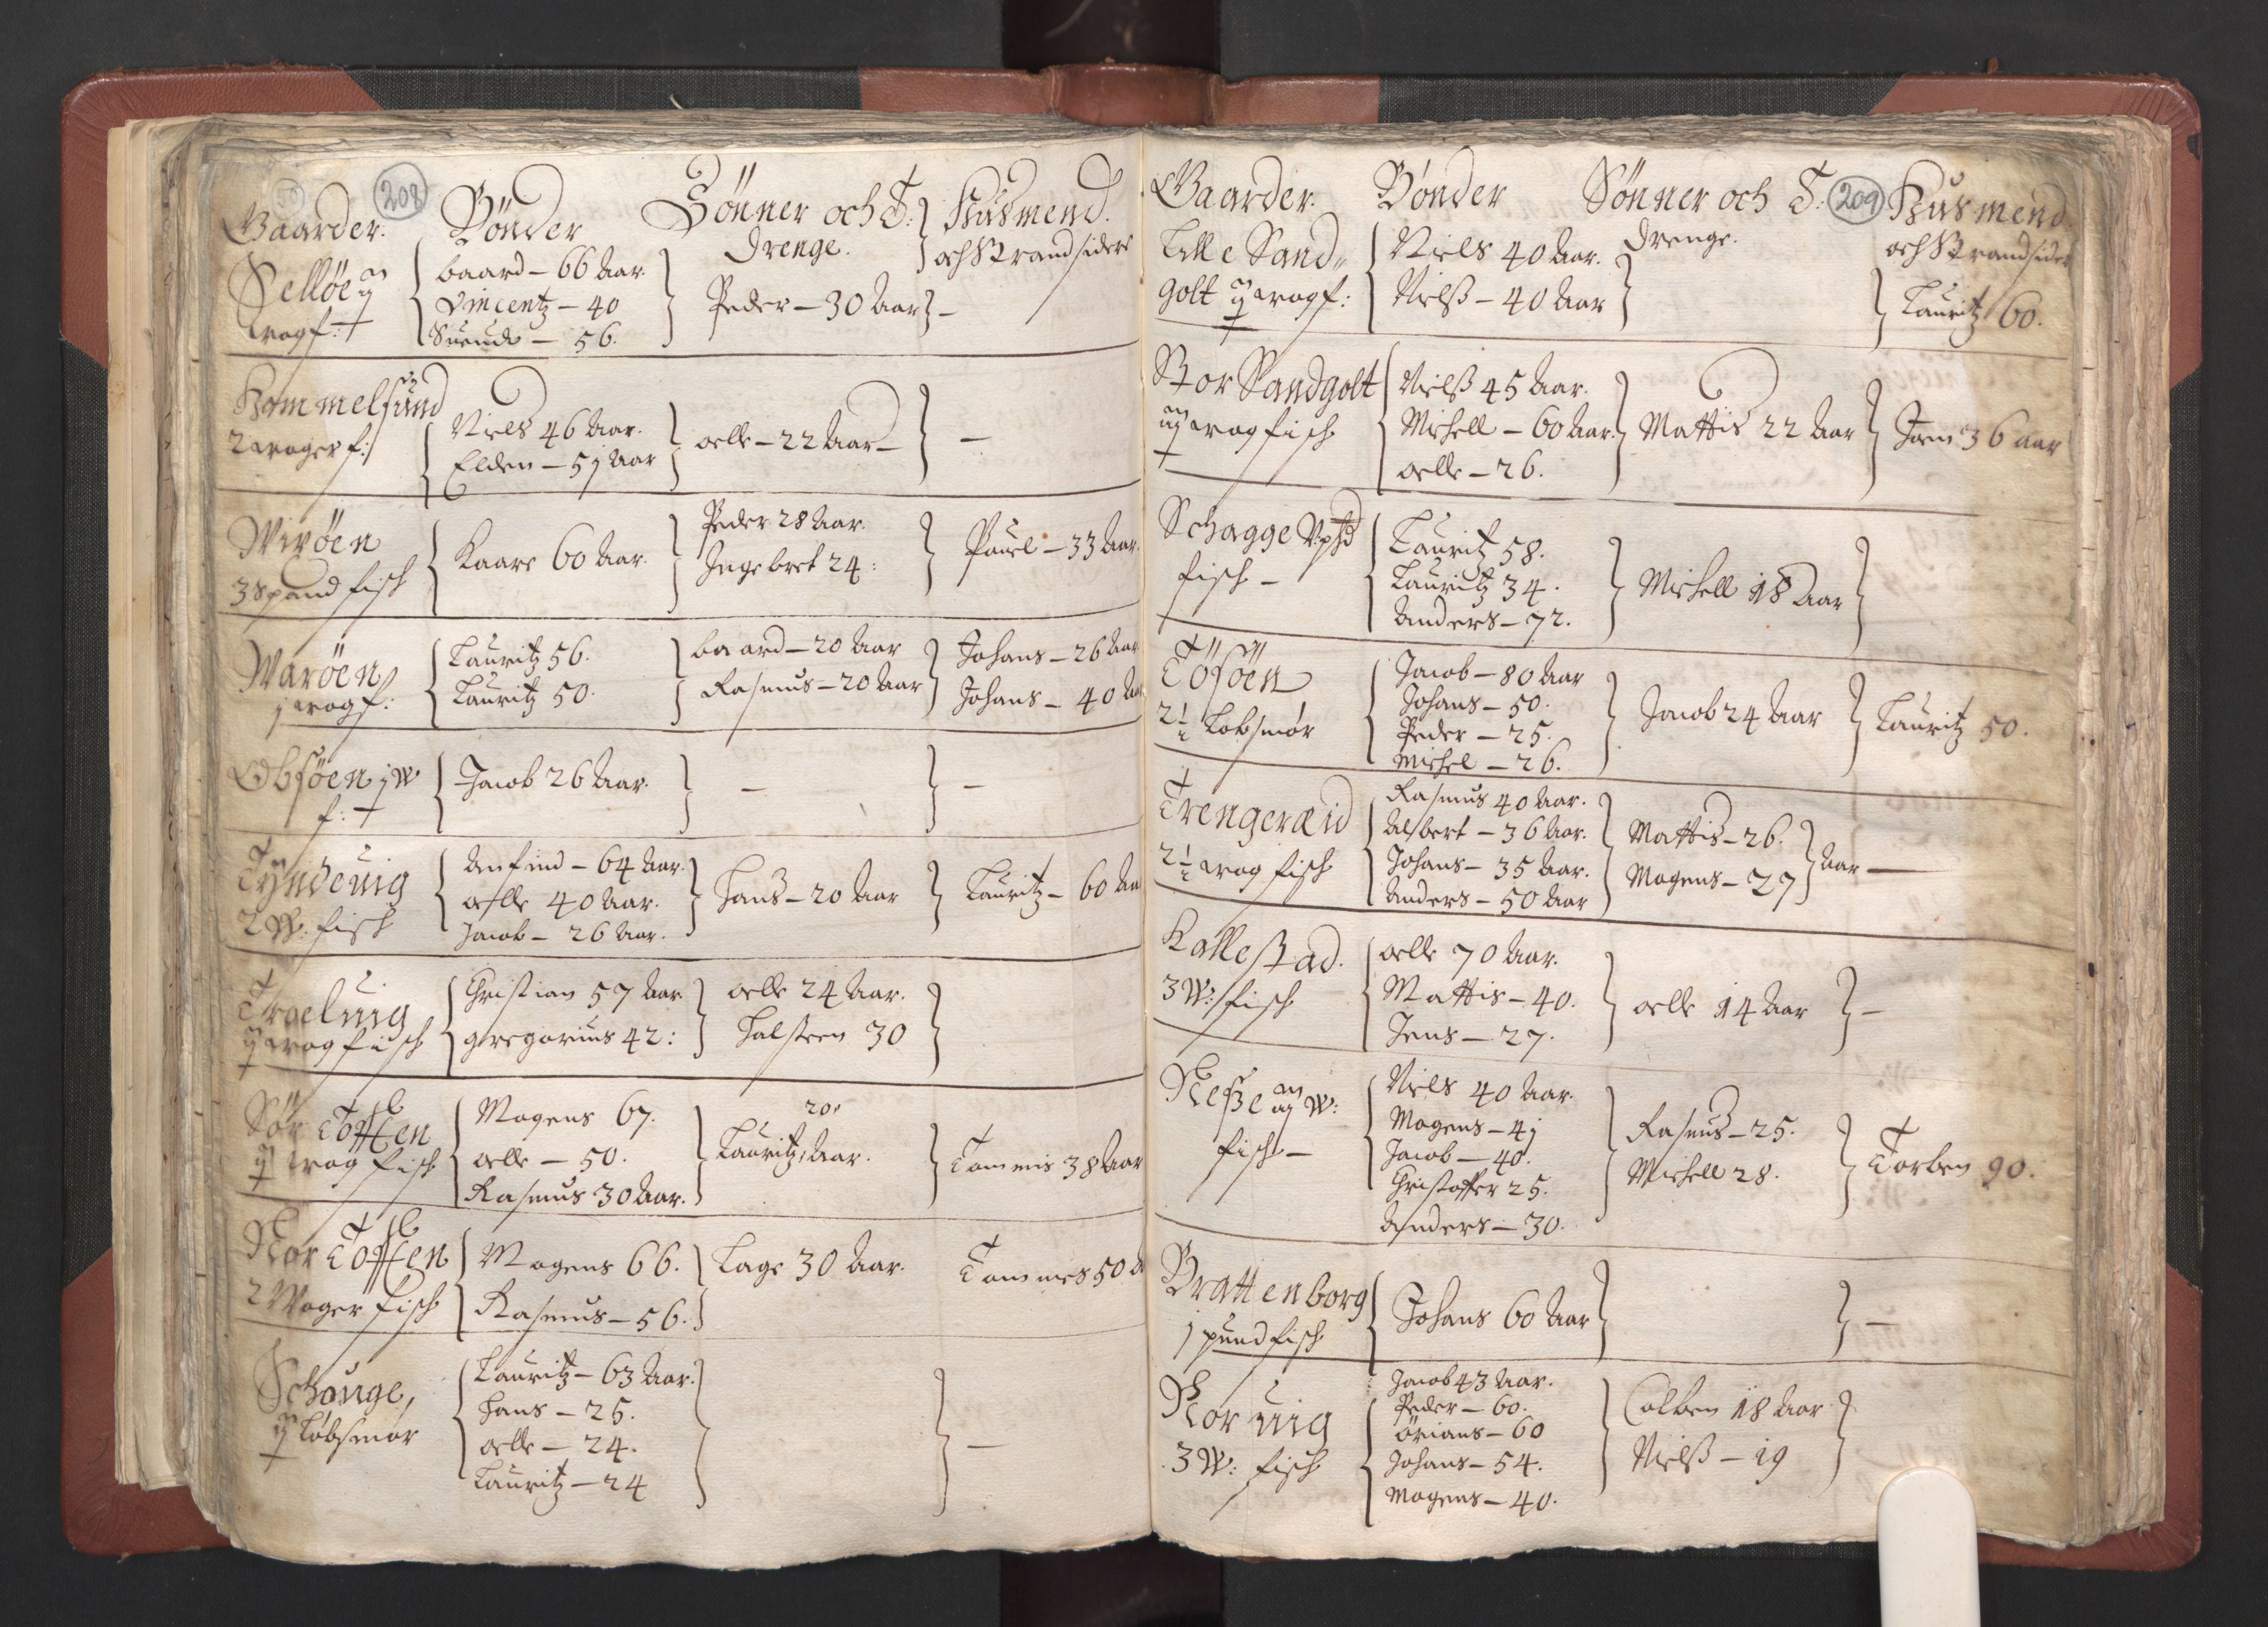 208
Gaarder. Bönder Sönner och T: Husmend.
Drenge. och Strandsidere
Selløe
baard – 66 Aar.
Vincentz – 40
Suend – 56.
Peder – 30 Aar –
wogf:
Hommelsund
2 woger f:
Niels 46 Aar.
Elden – 51 Aar
oelle – 22 Aar –
–
Wiröen
3 spand fisch
Kaare 60 Aar.
Peder 28 Aar.
Ingebret 24:
Pouel – 33 Aar.
Waröen
j wogf:
Lauritz 56.
Lauritz 50.
baard – 20 Aar
Rasmus – 20 Aar
Johans – 26 Aar
Johans – 40 Aar
Obsöen j W
f:
Jacob 26 Aar.
–
–
Tyndeuig
2 W: fisch
Anfind – 64 Aar.
oelle 40 Aar.
Jacob – 26 Aar.
Hans – 20 Aar
Lauritz – 60 Aar
Troeluig
wog fisch
Christian 57 Aar
gregorius 42:
oelle 24 Aar.
Halsteen 30
Sör Tofften
wog fisch
Mogens 67.
oelle – 50.
Rasmus 30 Aar.
20
Lauritz, Aar.
Tommis 38 Aar
Nor Tofften
2 Woger fisch
Mogens 66.
Rasmus – 56.
Lage 30 Aar.
Tommes 50
Schouge,
Løbsmør
Lauritz – 63 Aar.
Hans – 25.
oelle – 24.
Lauritz – 24
–
209
Gaarder. Bönder Sönner och T: Husmend
Drenge. och Strandsider
Lille Sand„
golt wogf:
Niels 40 Aar.
Nielß – 40 Aar
Lauritz 60.
Stor Sandgolt
wog fisch
Nielß 45 Aar.
Michell – 60 Aar.
oelle – 26.
Mattis 22 Aar
Joen 36 aar
Schagge
fisch –
Lauritz 58.
Lauritz 34.
Anders – 72.
Michell 18 Aar
Töföen
2½ Løbsmør
Jacob – 80 Aar
Johans – 50.
Peder – 25.
Michel – 26.
Jacob 24 Aar
Lauritz 50.
Trengeræid
2½ wog fisch
Rasmus 40 Aar.
Albert – 36 Aar.
Johans – 35 Aar.
Anders – 50 Aar
Mattis – 26.
Mogens – 27
Aar –
Kallestad.
3 W: fisch
oelle 70 Aar.
Mattis – 40.
Jens – 27.
oelle 14 Aar
–
Neße W:
fisch –
Niels 40 Aar.
Mogens – 4j
Jacob – 40.
Christoffer 25.
Anders – 30.
Rasmus – 25.
Michell 28.
Torben 90.
Brattenborg
j pund fisch
Johans 60 Aar
–
Noruig
3 W: fisch
Jacob 43 Aar.
Peder – 60.
örians – 60
Johans – 54.
Mogens – 40.
Colben 18 Aar
Nielß – 19